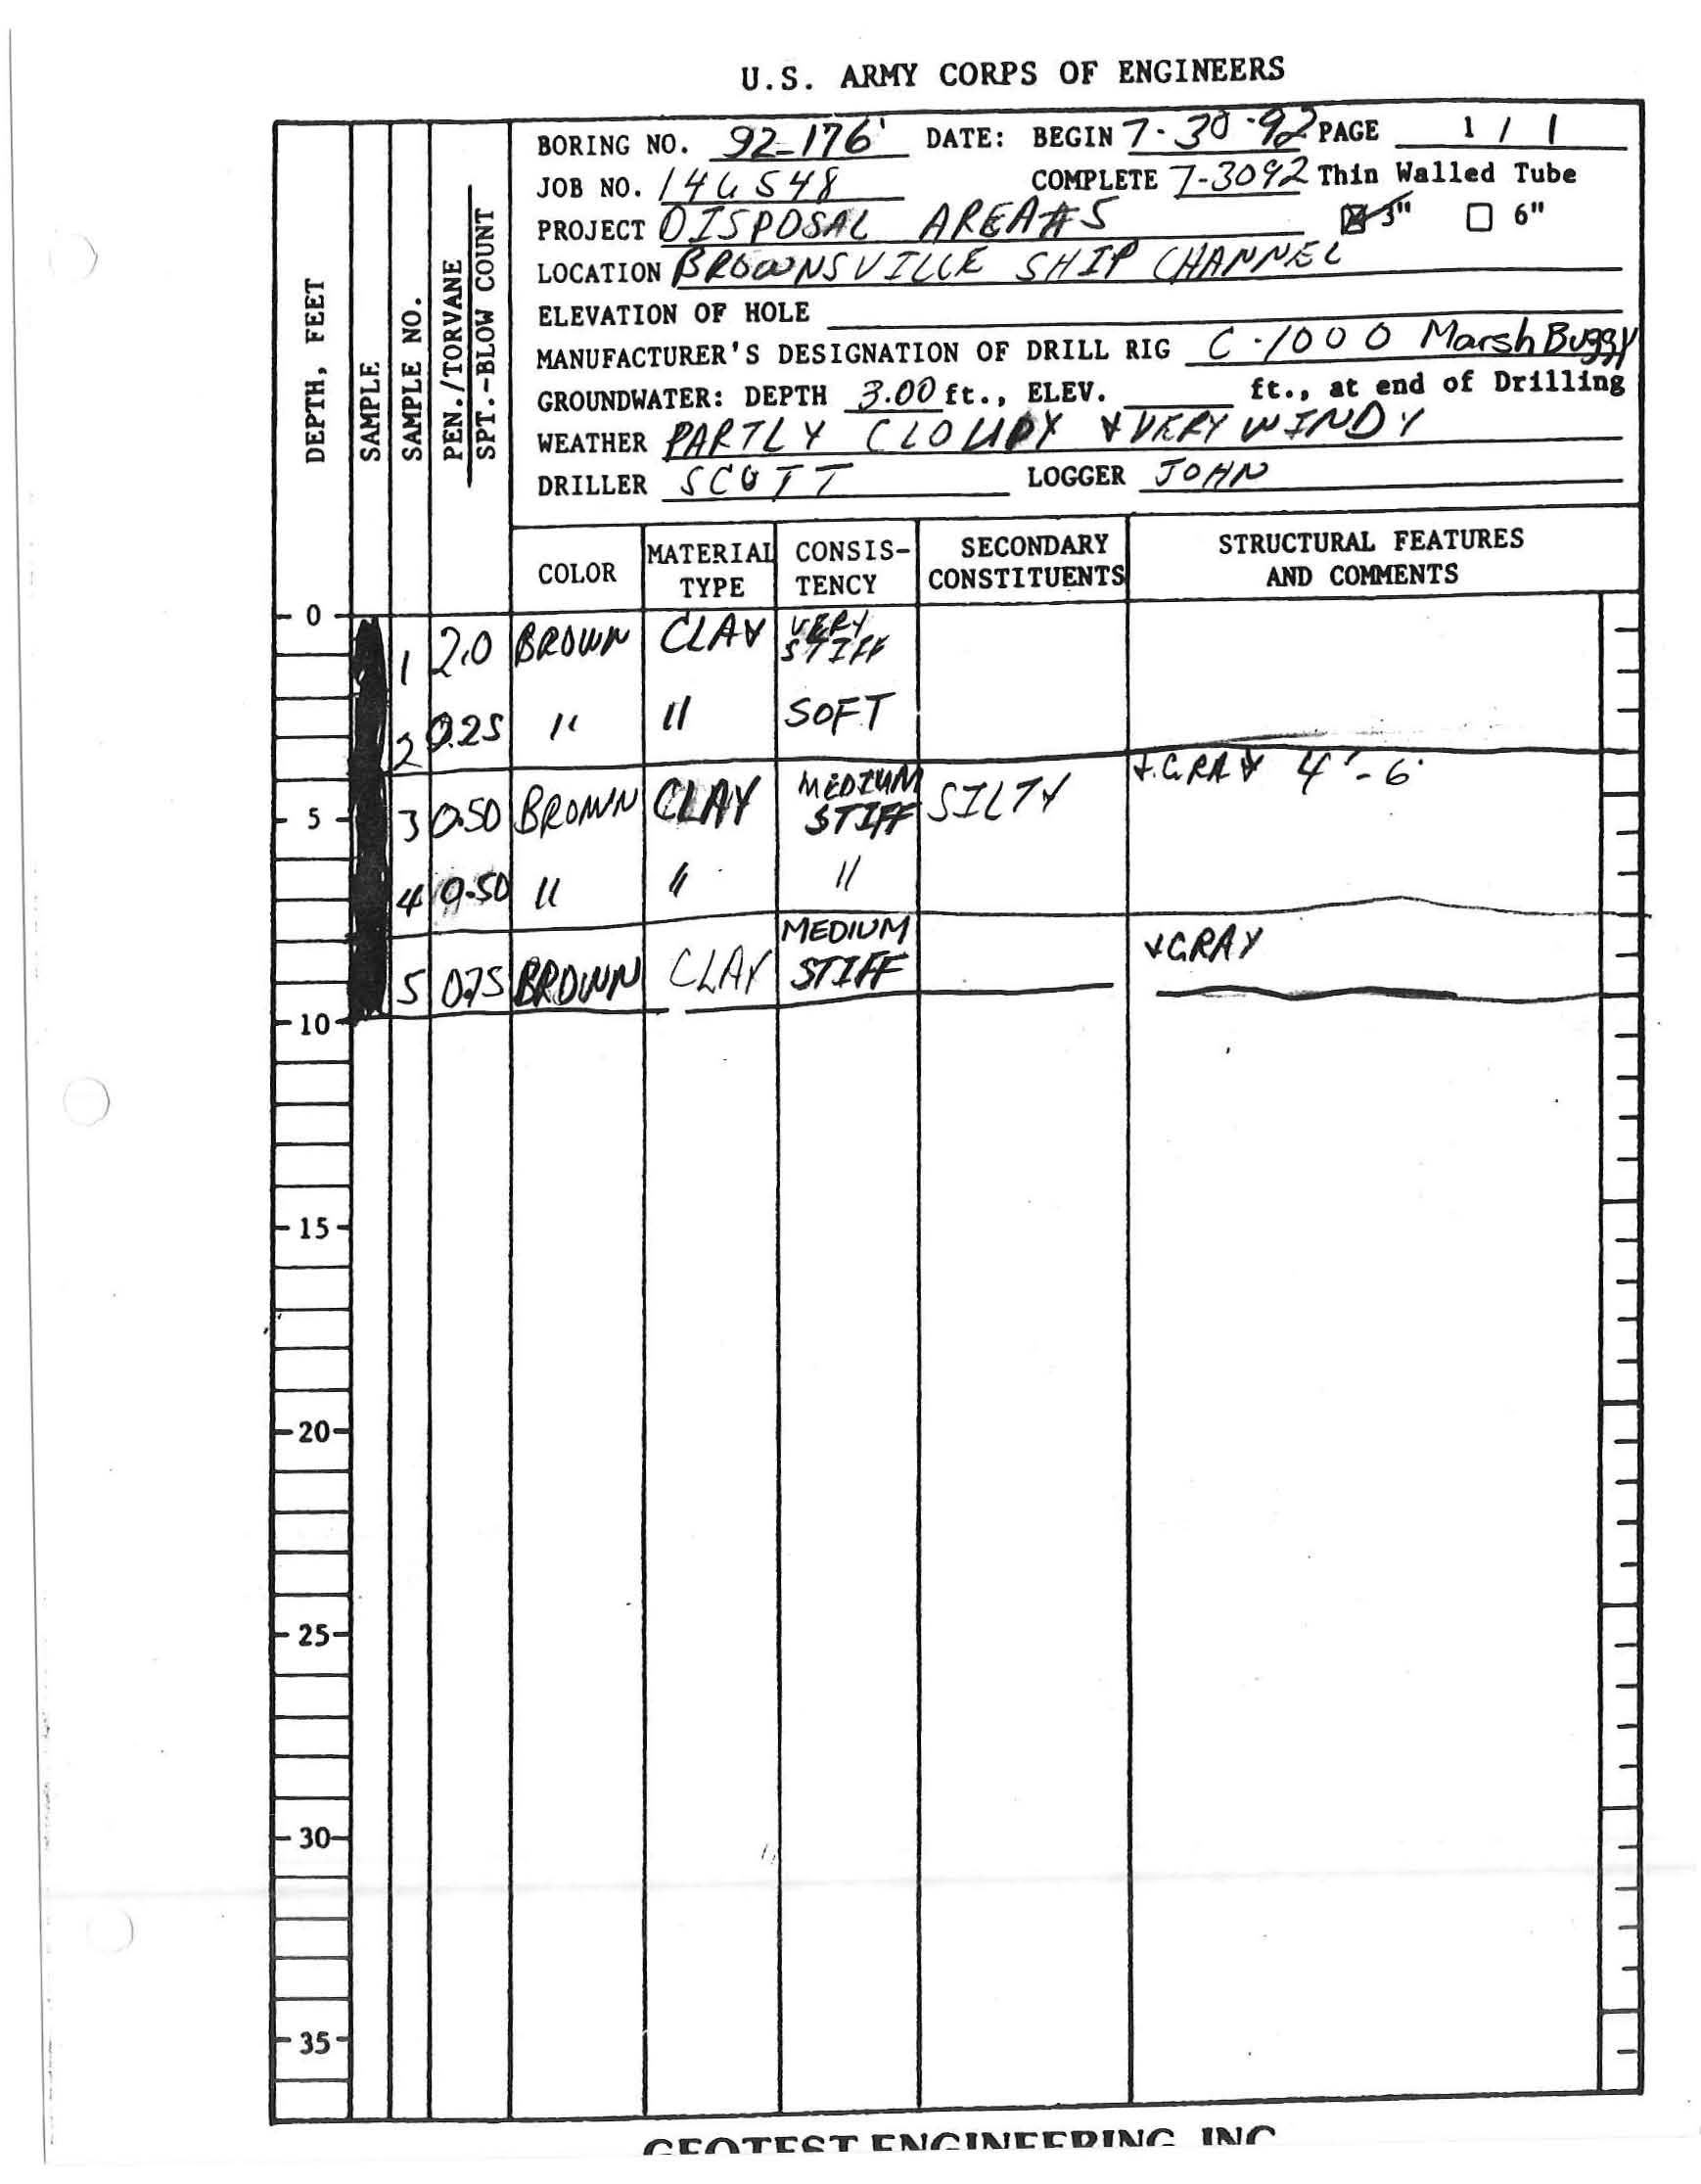 U.S. ARMY CORPS OF ENGINEERS
BORING NO. 92-176' DATE: BEGIN 7-30-92 PAGE 1 / 1
JOB NO. 14G548 COMPLETE 7-3092 Thin Walled Tube
PROJECT DISPOSAL AREA#5 3" 6"
LOCATION BROWNSVILLE SHIP CHANNEL
ELEVATION OF HOLE
MANUFACTURER'S DESIGNATION OF DRILL RIG C-1000 Marsh Buggy
GROUNDWATER: DEPTH 3.00 ft., ELEV. ft., at end of Drilling
WEATHER PARTLY CLOUDY & VERY WINDY
DRILLER SCOTT LOGGER JOHN
DEPTH, FEET
SAMPLE
SAMPLE NO.
PEN./TORVANE
SPT.-BLOW COUNT
COLOR
MATERIAL
TYPE
CONSIS-
TENCY
SECONDARY
CONSTITUENTS
STRUCTURAL FEATURES
AND COMMENTS
0
1 2.0 BROWN CLAY VERY STIFF
2 0.25 " " SOFT
5
3 0.50 BROWN CLAY MEDIUM STIFF SILTY & GRAY 4'-6'
4 0.50 " " "
5 0.75 BROWN CLAY MEDIUM STIFF & GRAY
10
15
20
25
30
35
GEOTEST ENGINEERING INC